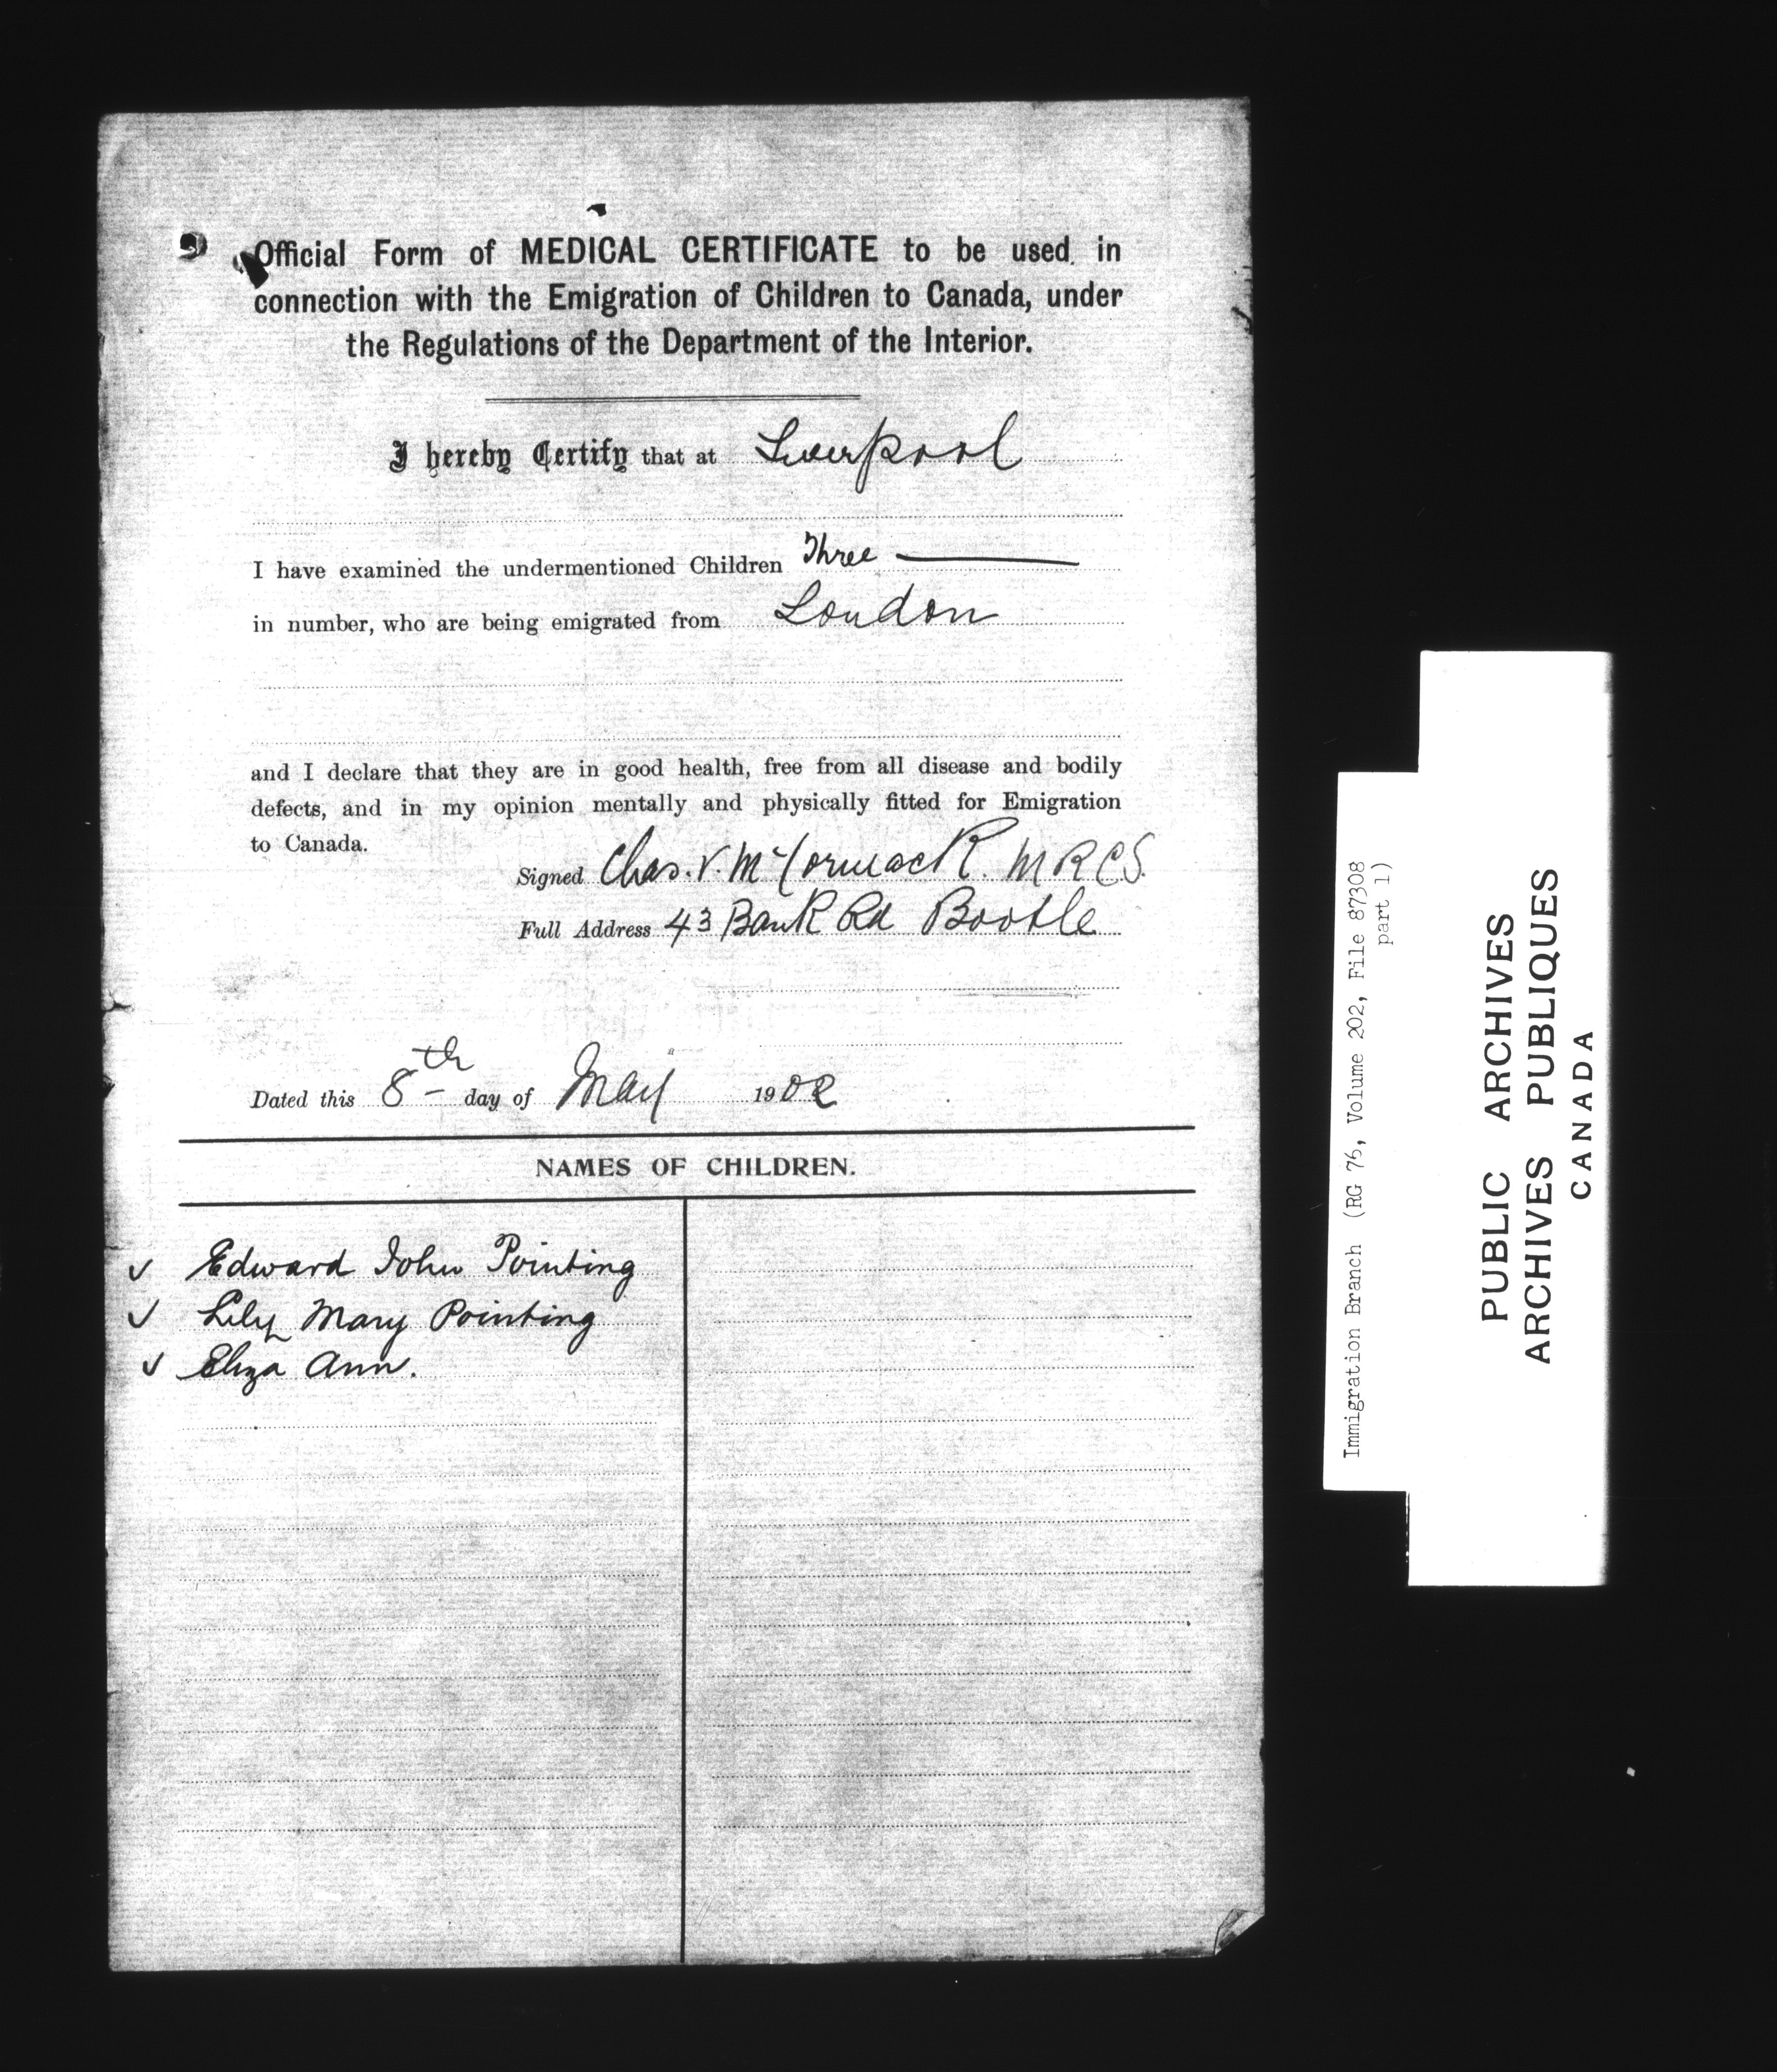 Official Form of MEDICAL CERTIFICATE to be used in
connection with the Emigration of Children to Canada, under
the Regulations of the Department of the Interior.
I hereby Certify that at Liverpool
I have examined the undermentioned Children Three
in number, who are being emigrated from London
and I declare that they are in good health, free from all disease and bodily
defects, and in my opinion mentally and physically fitted for Emigration
to Canada.
Signed Chas. V. McCormack. MRCS.
Full Address 43 Bank Rd Bootle
Dated this 8th day of May 1902
NAMES OF CHILDREN.
✓ Edward John Pointing
✓ Lily Mary Pointing
✓ Eliza Ann.
Immigration Branch (RG 76, Volume 202, File 87308
part 1)
PUBLIC ARCHIVES
ARCHIVES PUBLIQUES
CANADA